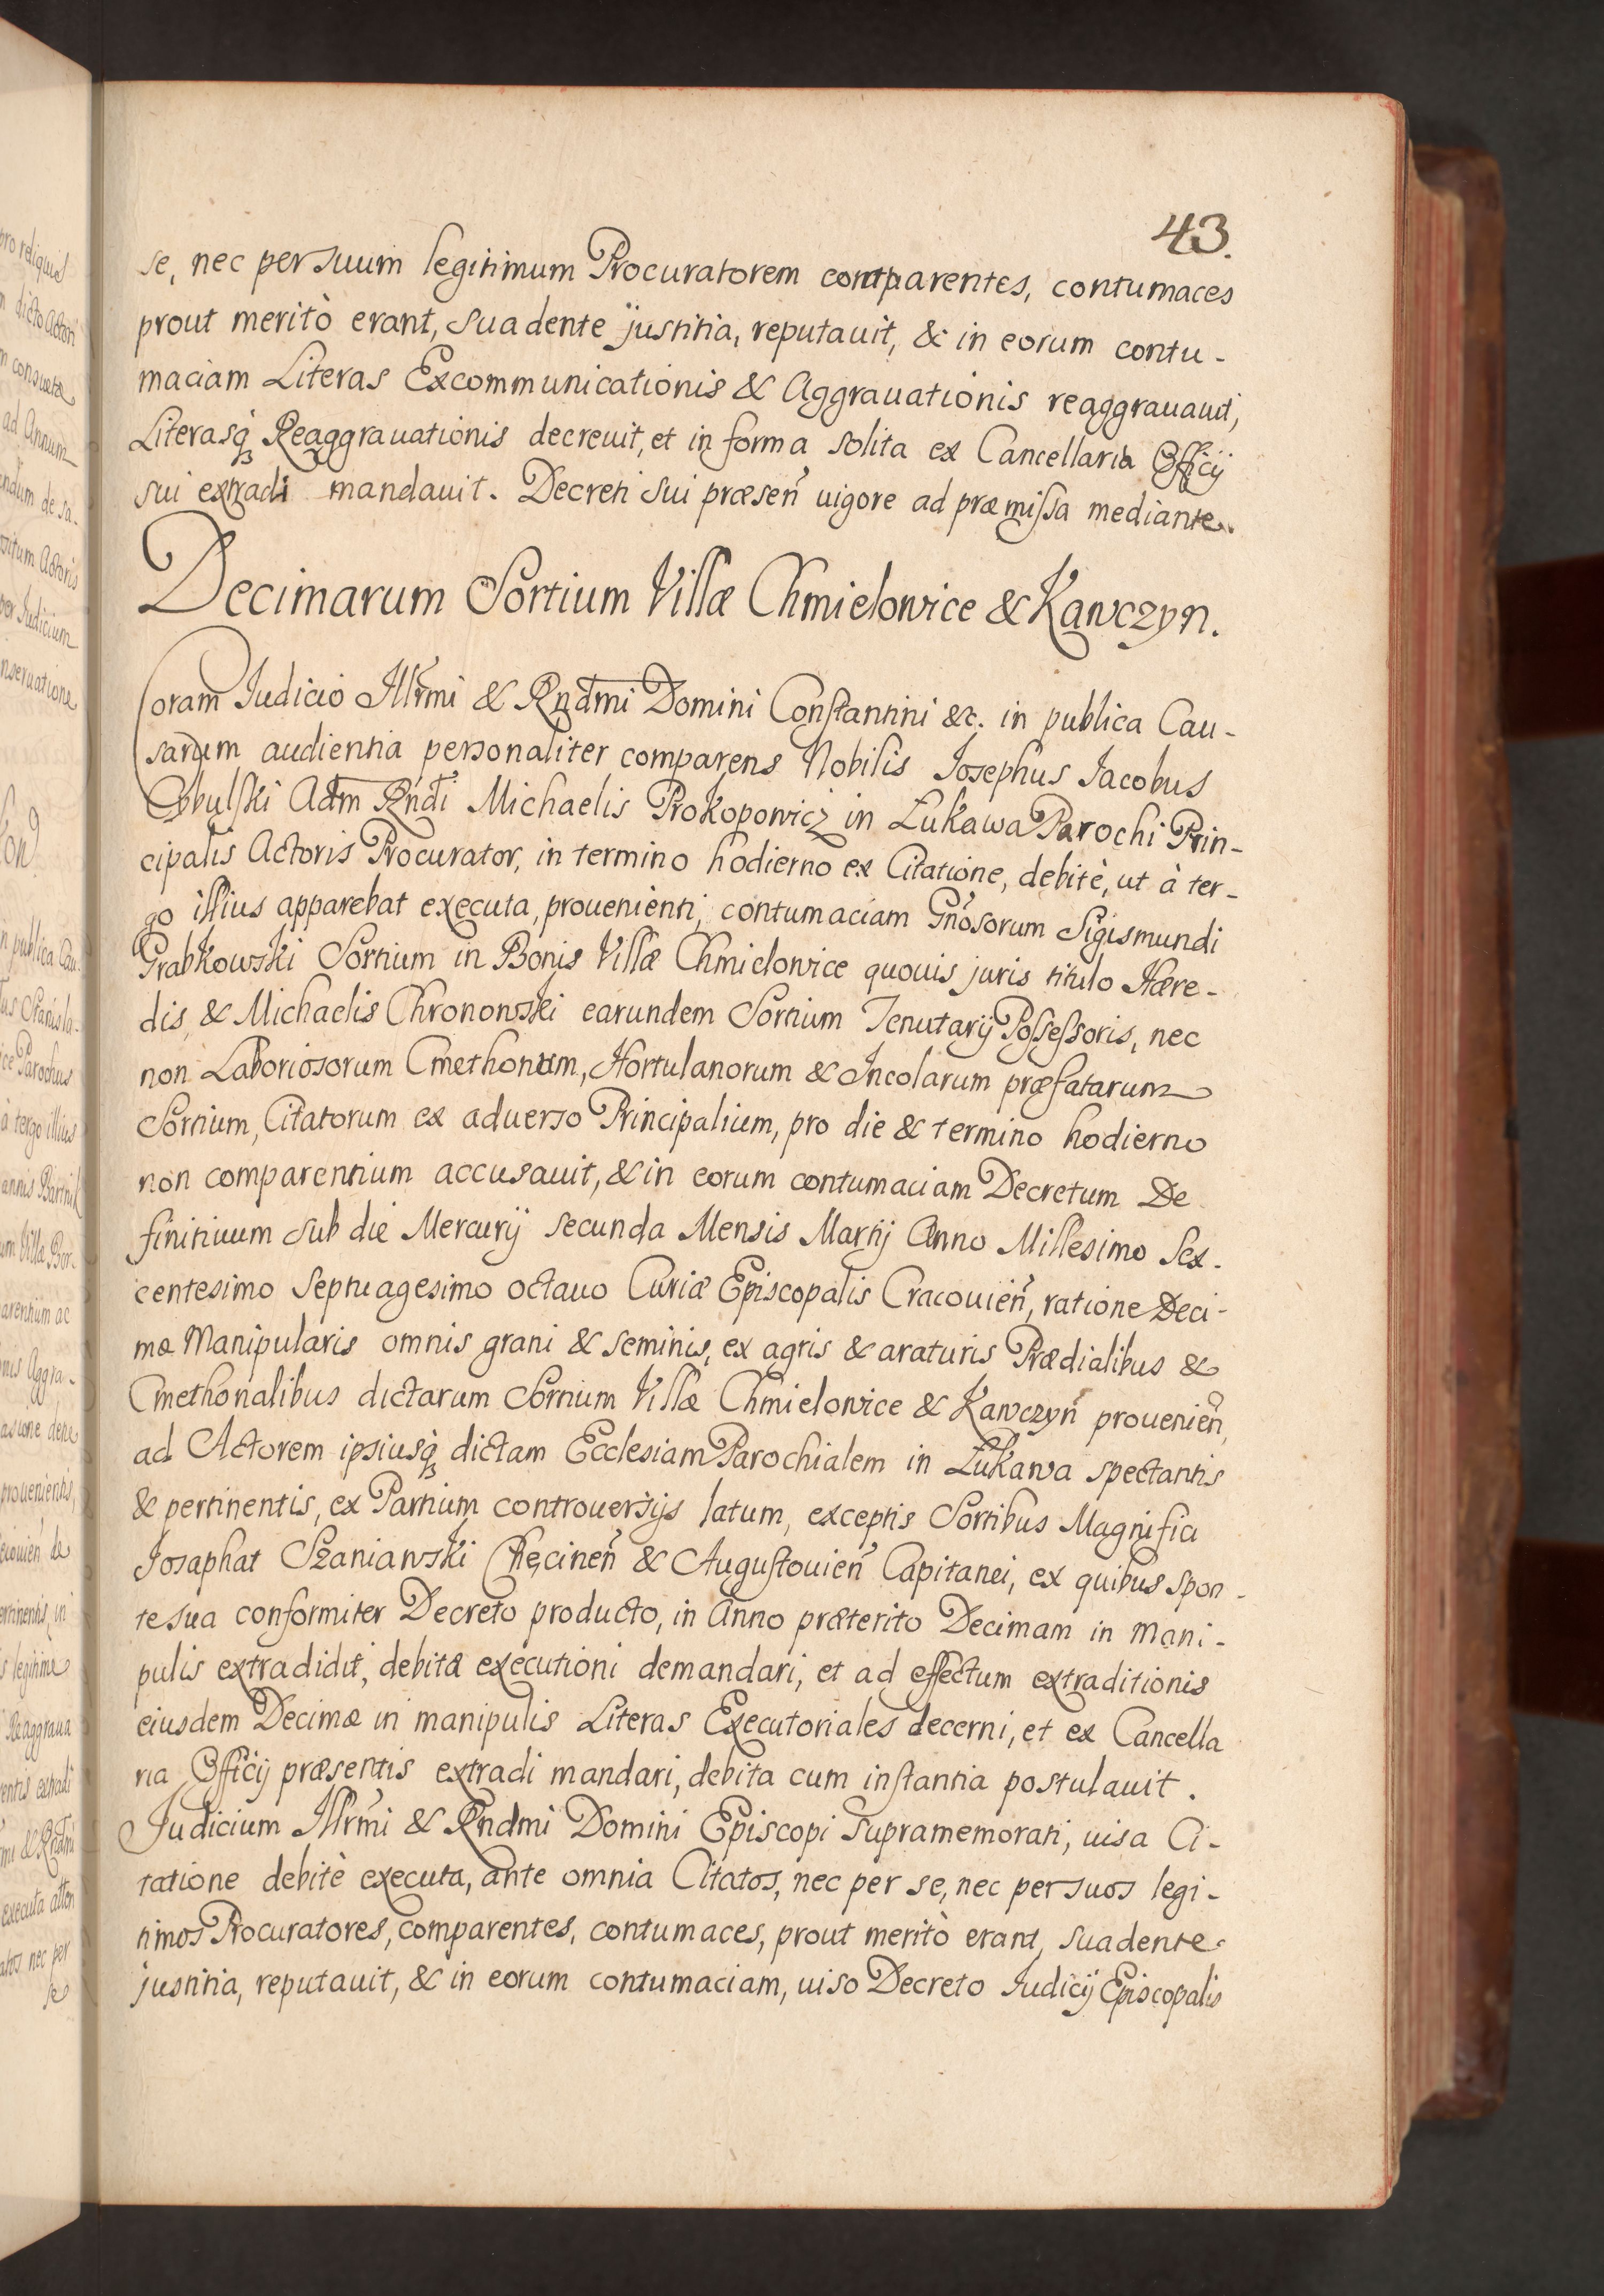 43.
se, nec per suum legitimum Procuratorem comparentes, contumaces
prout meritò erant, suadente justitia, reputauit, & in eorum contu-
maciam Literas Excommunicationis & Aggrauationis reaggrauauit,
Literasq₃ Reaggrauationis decreuit, et in forma solita ex Cancellaria Officij
sui extradi mandauit. Decreti sui præsen̄ uigore ad præmissa mediante.
Decimarum Sortium Villæ Chmielowice & Kawczyn.
Coram Iudicio Illr̄mi & Rnd̄mi Domini Constantini &c. in publica Cau-
sarum audientia personaliter comparens Nobilis Iosephus Iacobus
Cybulski Adm̄ Rnd̄i Michaelis Prokopowicz in Łukawa Parochi Prin-
cipalis Actoris Procurator, in termino hodierno ex Citatione, debitè, ut à ter-
go illius apparebat executa, prouenienti, contumaciam Gn̄osorum Sigismundi
Grabkowski Sortium in Bonis Villæ Chmielowice quouis juris titulo Hære-
dis, & Michaelis Chronowski earundem Sortium Tenutarij Possessoris, nec
non Laboriosorum Cmethonum, Hortulanorum & Incolarum præfatarum
Sortium, Citatorum ex aduerso Principalium, pro die & termino hodierno
non comparentium accusauit, & in eorum contumaciam Decretum De
finitiuum sub die Mercurij secunda Mensis Martij Anno Millesimo Sex-
centesimo Septuagesimo octauo Curiæ Episcopalis Cracouien̄, ratione Deci-
mæ Manipularis omnis grani & seminis, ex agris & araturis Prædialibus &
Cmethonalibus dictarum Sortium Villæ Chmielowice & Kawczyn̄ prouenien̄,
ad Actorem ipsiusq₃ dictam Ecclesiam Parochialem in Łukawa spectantis
& pertinentis, ex Partium controuersijs latum, exceptis Sortibus Magnifici
Josaphat Szaniawski Chęcinen̄ & Augustouien̄ Capitanei, ex quibus spon-
te sua conformiter Decreto producto, in Anno præterito Decimam in Mani-
pulis extradidit, debitæ executioni demandari, et ad effectum extraditionis
eiusdem Decimæ in manipulis Literas Executoriales decerni, et ex Cancella
ria Officij præsentis extradi mandari, debita cum instantia postulauit.
Judicium Illr̄mi & Rndmi Domini Episcopi supramemorati, uisa Ci-
tatione debitè executa, ante omnia Citatos, nec per se, nec per suos legi-
timos Procuratores, comparentes, contumaces, prout meritò erant, suadente
justitia, reputauit, & in eorum contumaciam, uiso Decreto Iudicij Episcopalis